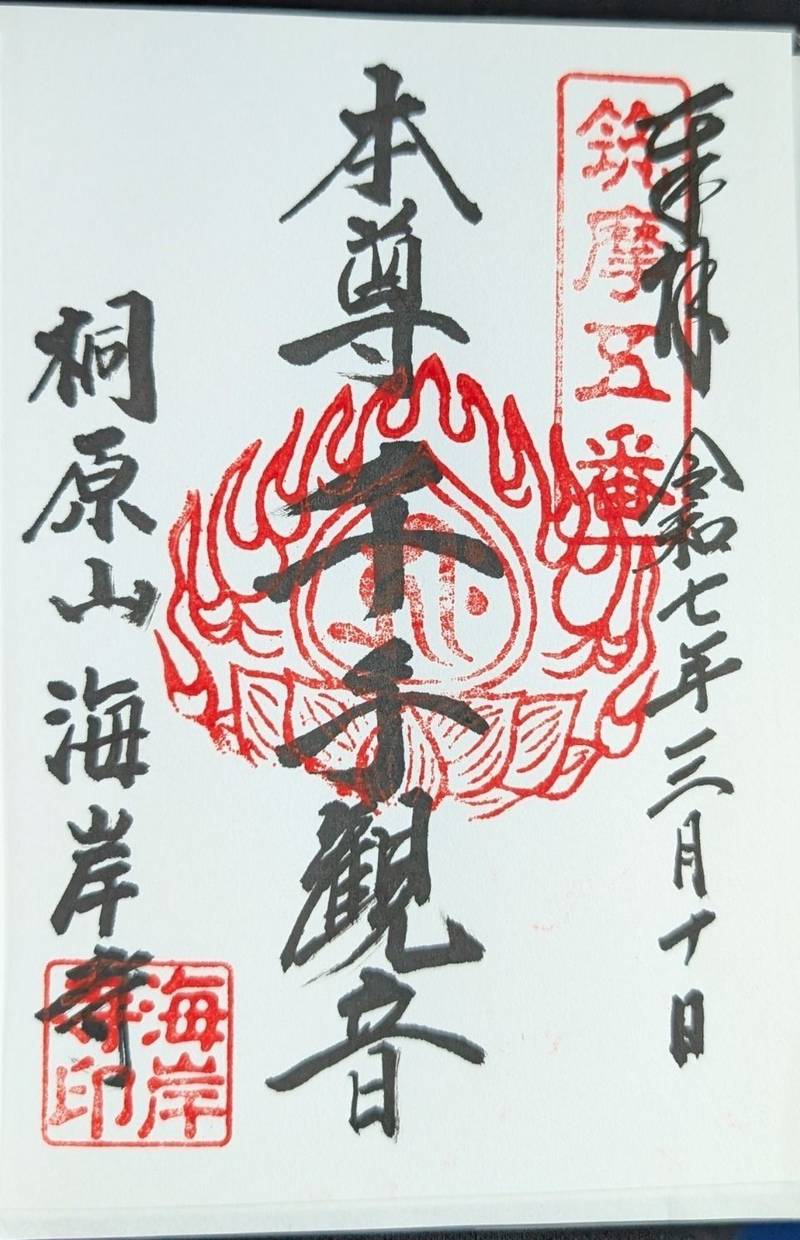 奉拝 令和七年三月十日
筑摩五番
本尊 千手観音
桐原山 海岸寺
海岸
寺印